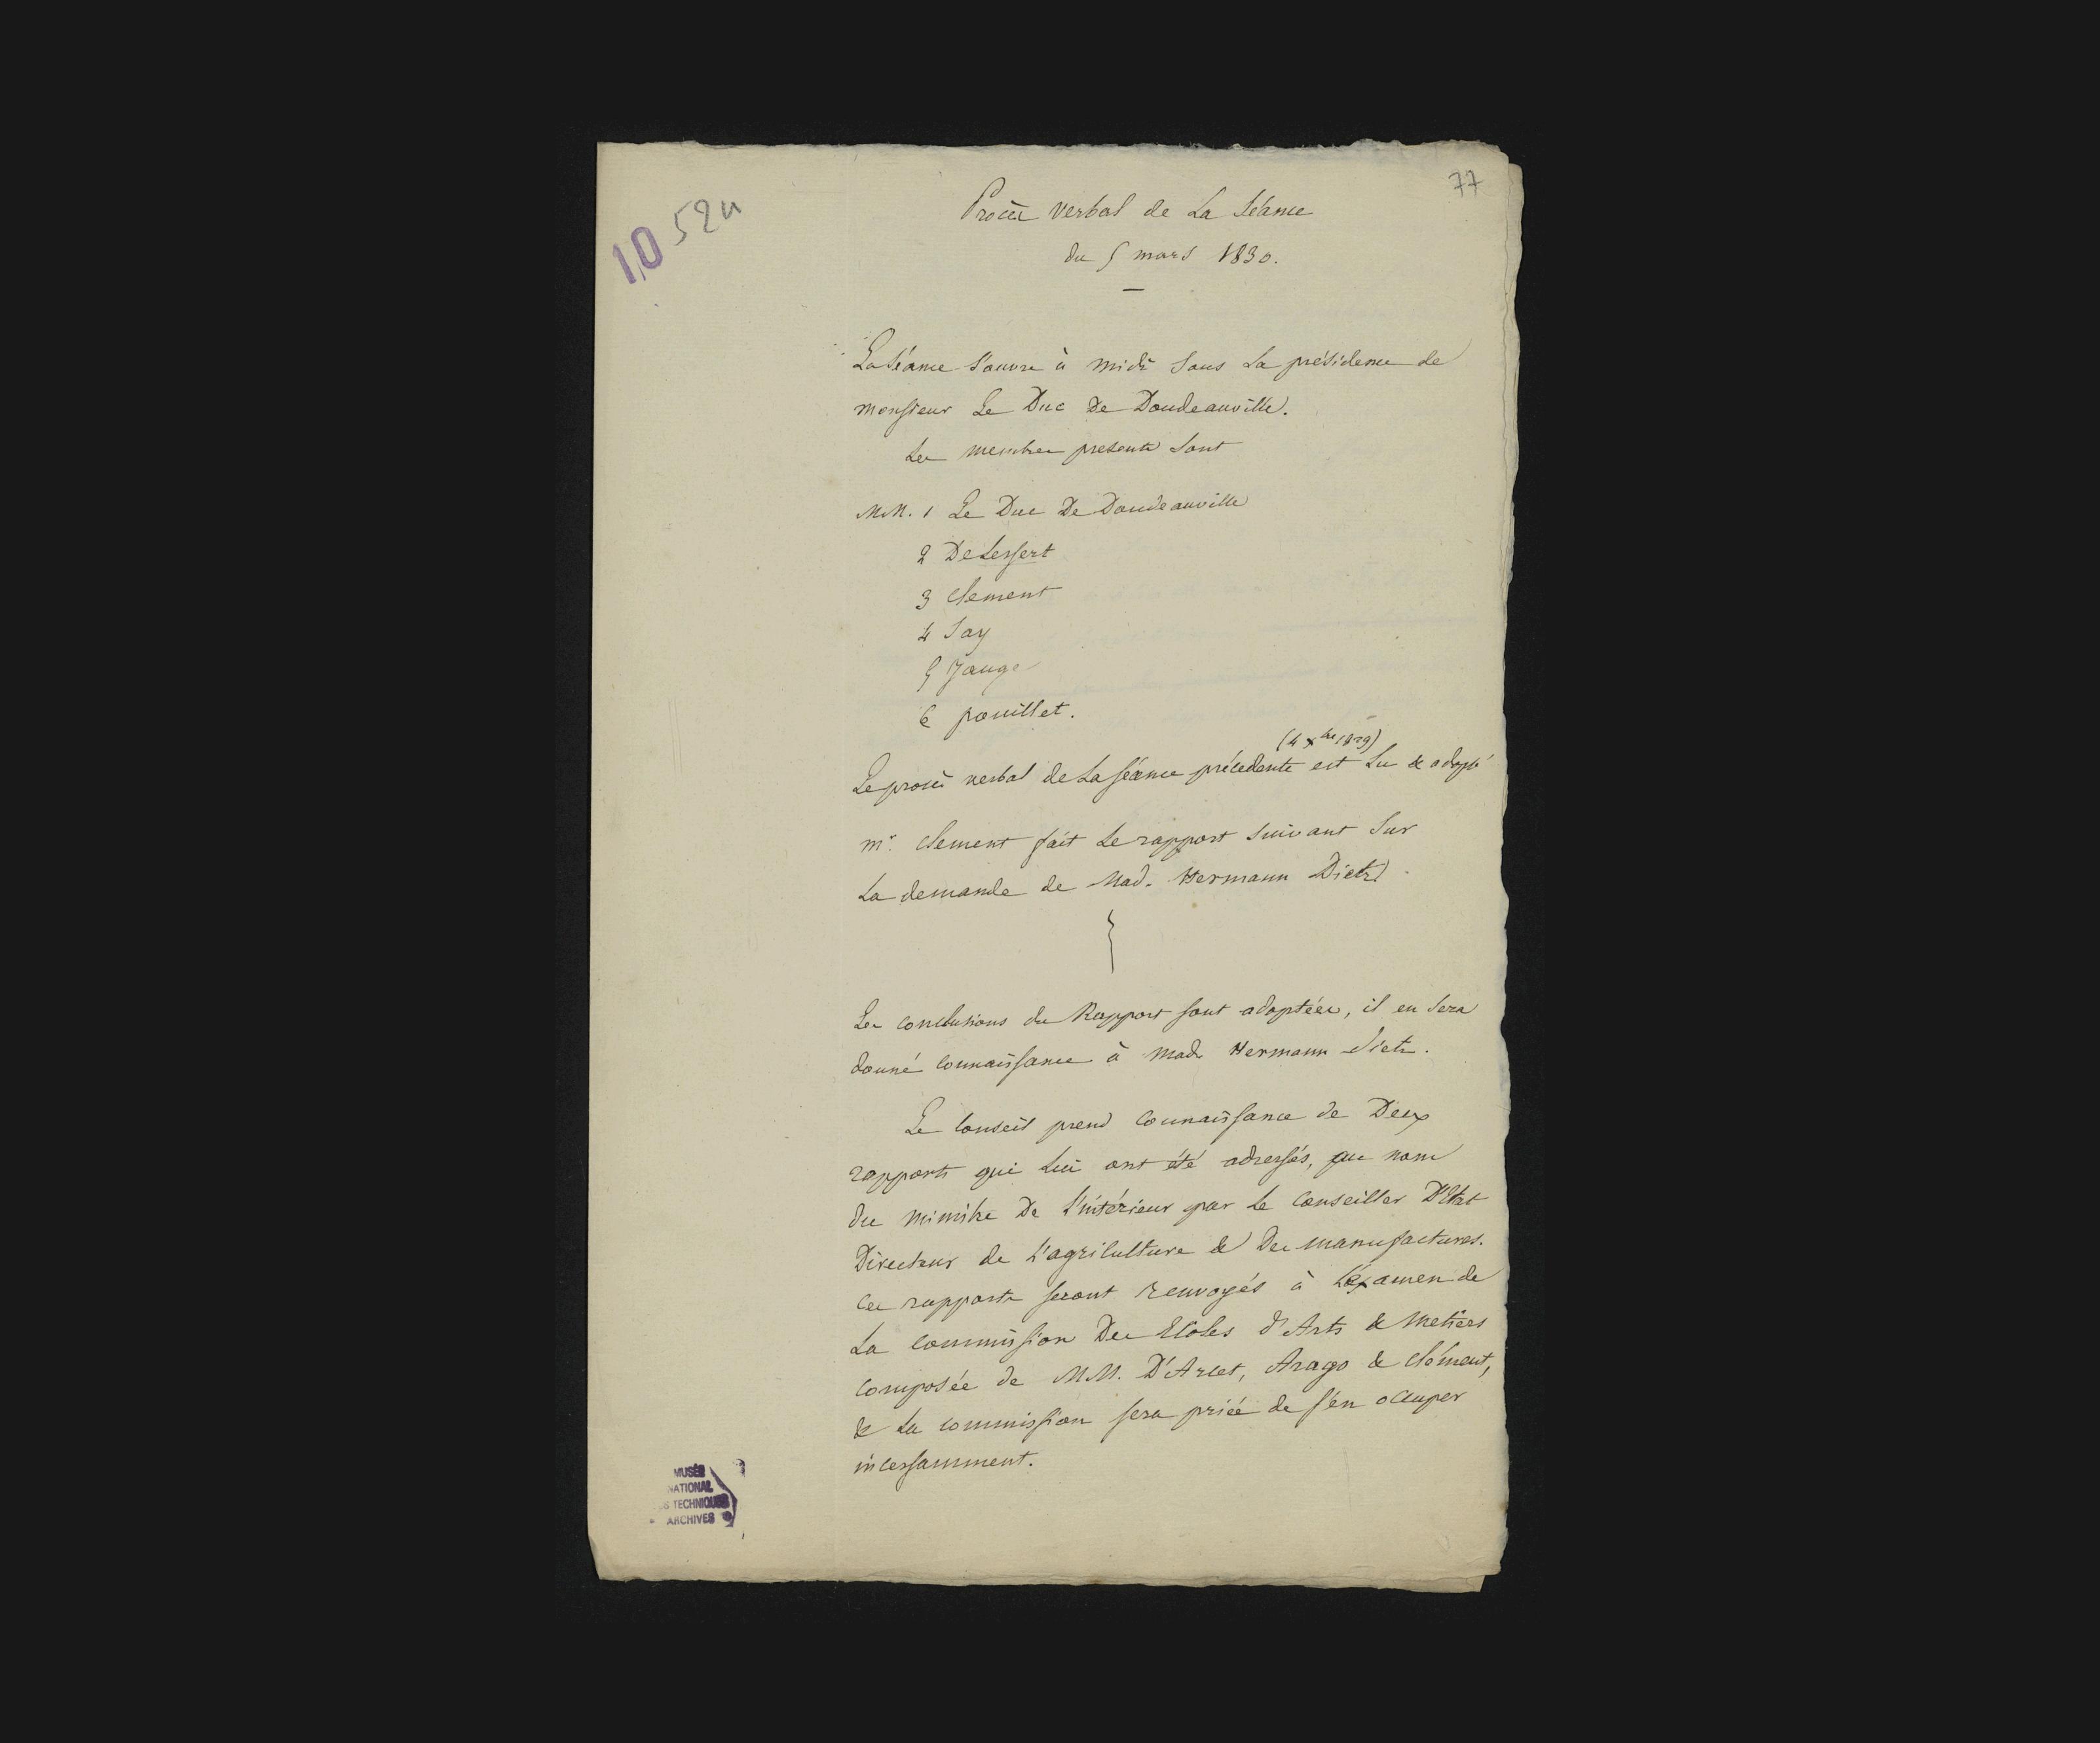 77
10 524
Procès verbal de La Séance
du 5 mars 1830.
La Séance s'ouvre à midi sous La présidence de
monsieur Le Duc De Doudeauville.
Les membres presents sont
MM. 1 Le Duc De Doudeauville
2 DeLessert
3 Clement
4 Say
5 Jauge
6 pouillet.
(4 xbre 1829)
Le procès verbal de La Séance précedente est Lu & adopté
mr. Clement fait Le rapport suivant sur
La demande de Mad. Hermann Dietz
Les conclusions du Rapport sont adoptées, il en sera
donné connaissance à Made Hermann Dietz.
Le Conseil prend connaissance de Deux
rapports qui Lui ont été adressés, au nom
du ministre De L'intérieur par Le Conseiller D'Etat
Directeur de L'agriculture & Des manufactures.
Ces rapports seront renvoyés à L'éxamen de
La commission Des Ecoles d'Arts & Metiers
composée de MM. D'Arcet, Arago & Clément,
& La commission sera priée de s'en occuper
incessamment.
MUSÉE
NATIONAL
S TECHNIQUES
ARCHIVES